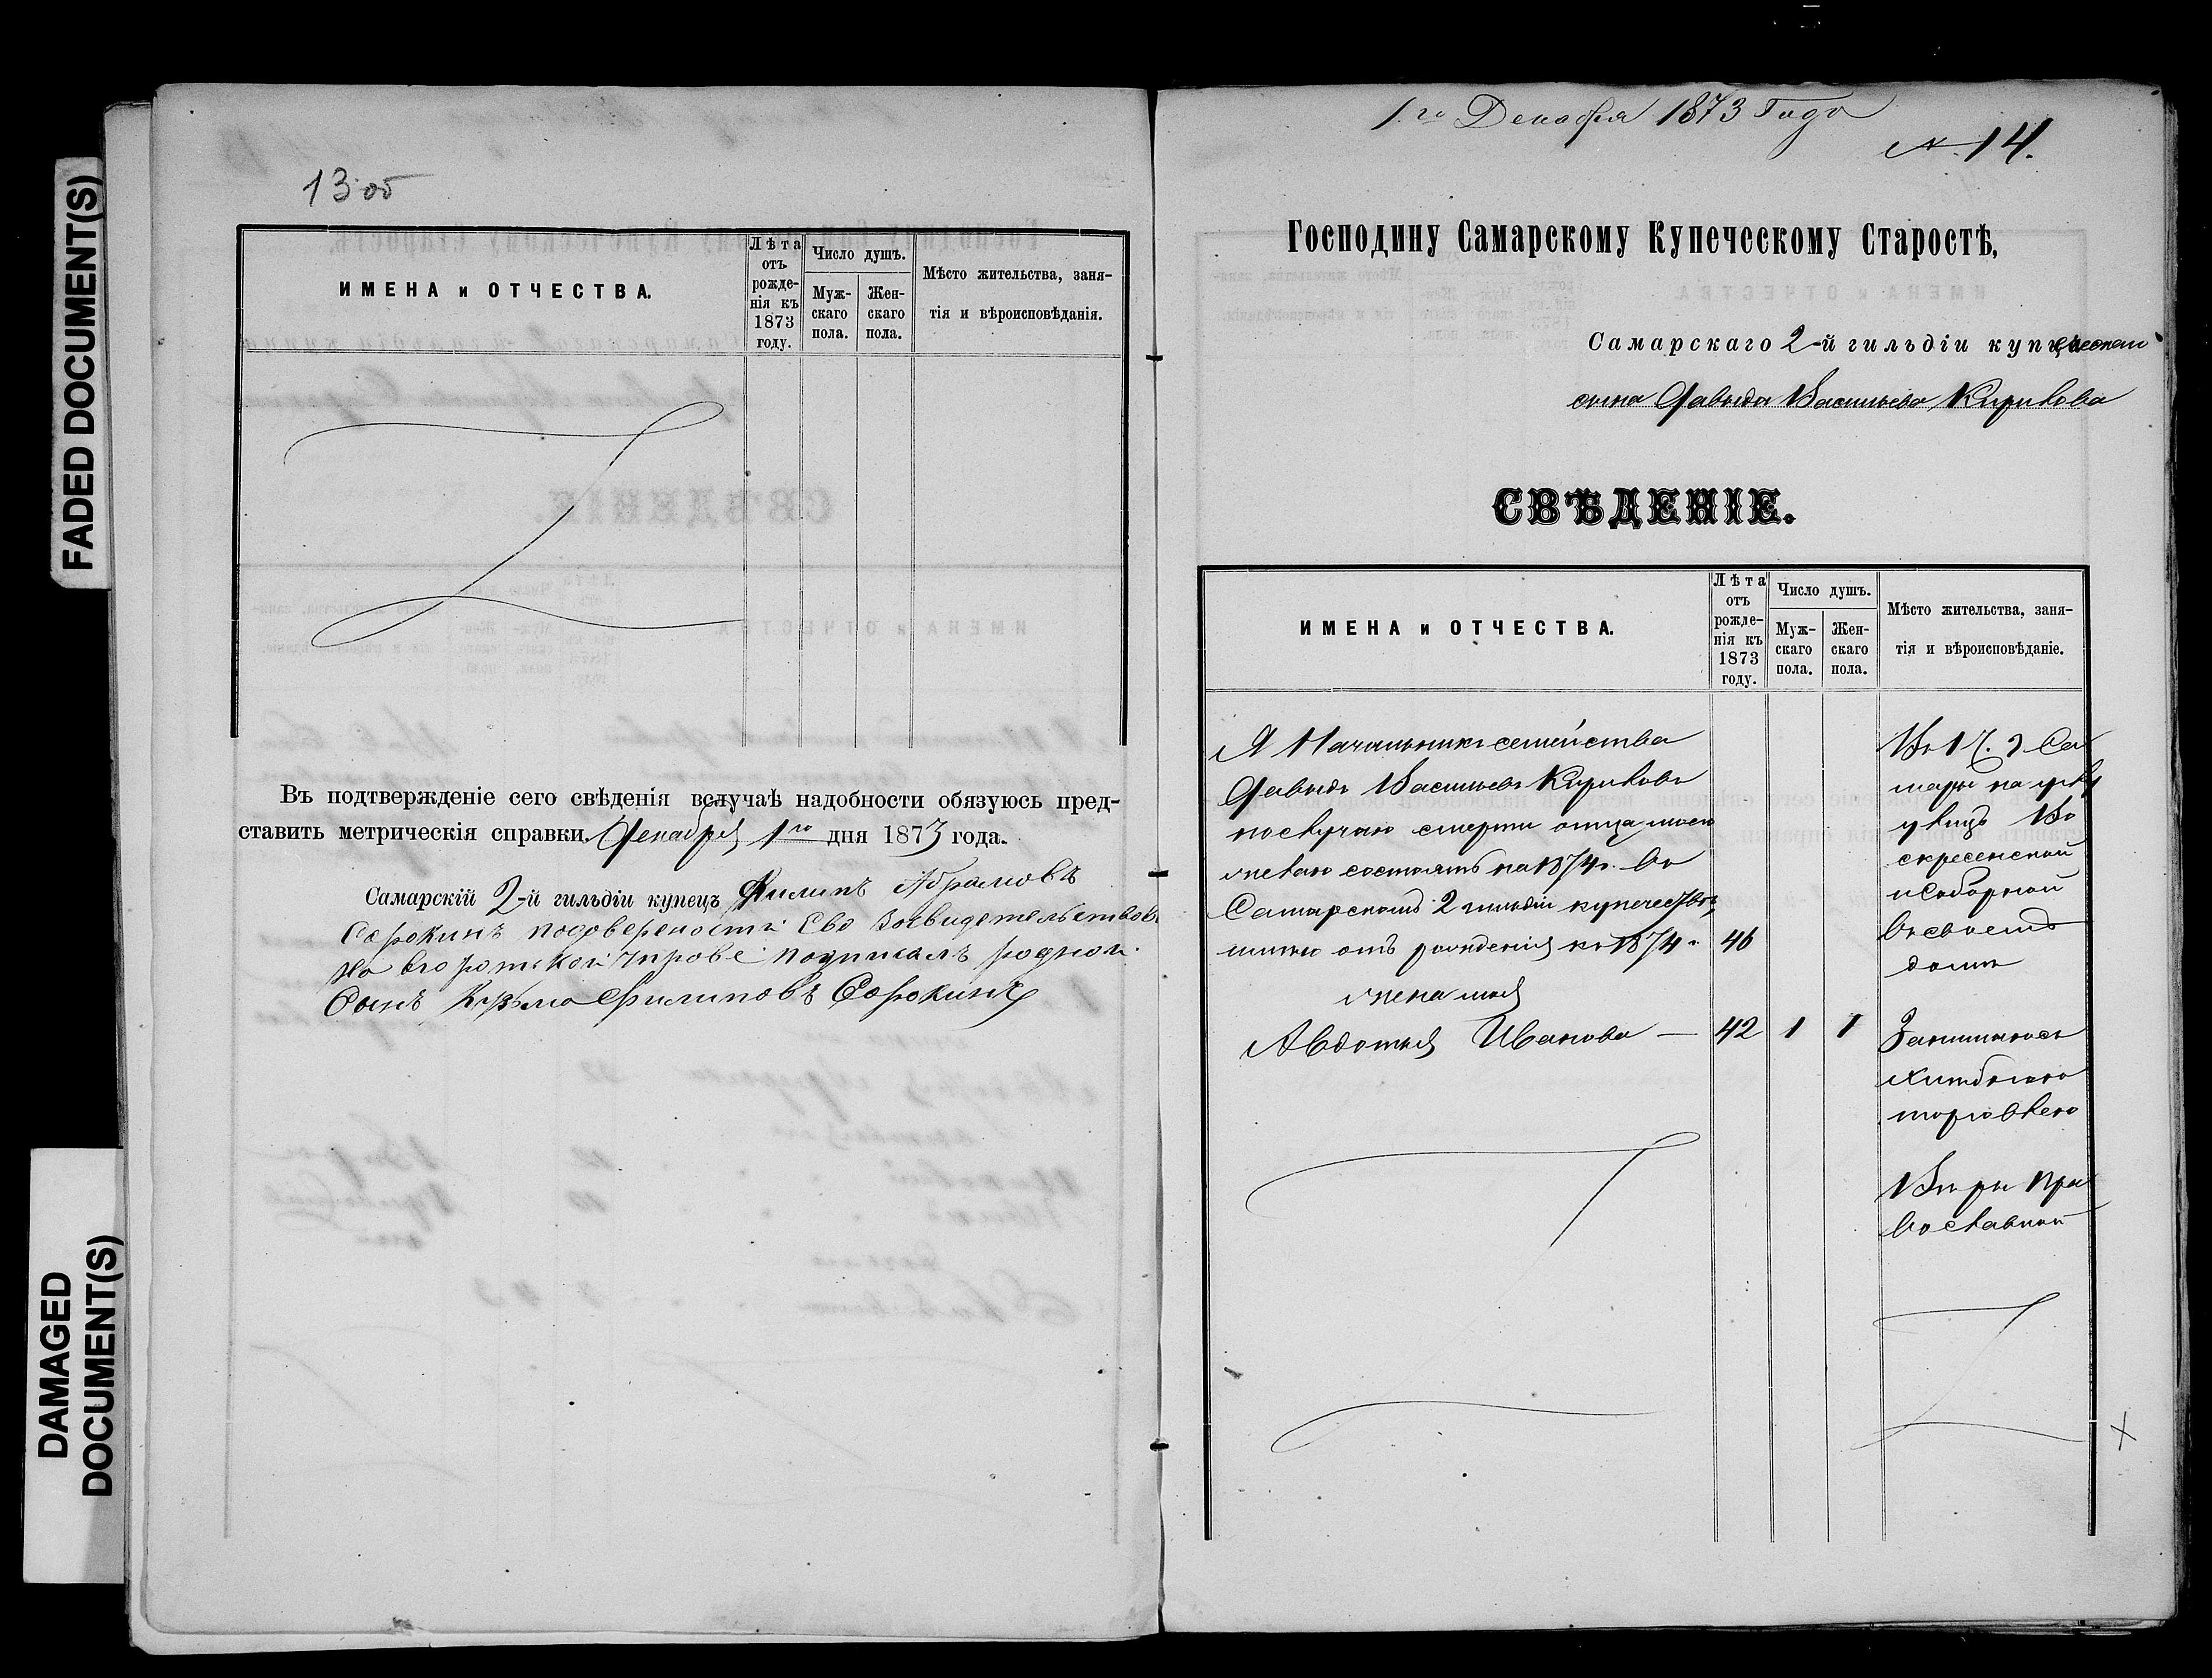 FADED DOCUMENT(S)
DAMAGED
DOCUMENT(S)
13 об
ИМЕНА и ОТЧЕСТВА.
Лѣта
отъ
рожде-
нія къ
1873
году.
Число душъ.
Муж-
скаго
пола.
Жен-
скаго
пола.
Мѣсто жительства, заня-
тія и вѣроисповѣданія.
Въ подтвержденіе сего свѣденія вслучаѣ надобности обязуюсь пред-
ставить метрическія справки. Декабря 1го дня 1873 года.
Самарскій 2-й гильдіи купецъ Филипъ Абрамовъ
Сорокинъ
подписалъ родной
Сынъ Кузьма Филиповъ Сорокинъ
1го Декабря 1873 Года
N. 14.
Господину Самарскому Купеческому Старостѣ,
Самарскаго 2-й гильдіи купеческаго
сына Давыда Васильева Кирилова
СВѢДЕНІЕ.
ИМЕНА и ОТЧЕСТВА.
Лѣта
отъ
рожде-
нія къ
1873
году.
Число душъ.
Муж-
скаго
пола.
Жен-
скаго
пола.
Мѣсто жительства, заня-
тія и вѣроисповѣданіе.
Я Начальникъ семейства
Давыдъ Васильевъ Кириловъ
послучаю смерти отца моего
желаю состоять на 1874 г. во
Самарскомъ 2 гильдіи купечествѣ,
отъ рожденія къ 1874 г. 46
жена моя
Авдотья Иванова — 42 1 1
Во 1 Ч. г Са
мары на углу
улицъ Во
скресенской
и Соборной
Въ своемъ
домѣ
Занимаюсь
хлѣбною
торговлею
Вѣры Пра
вославной